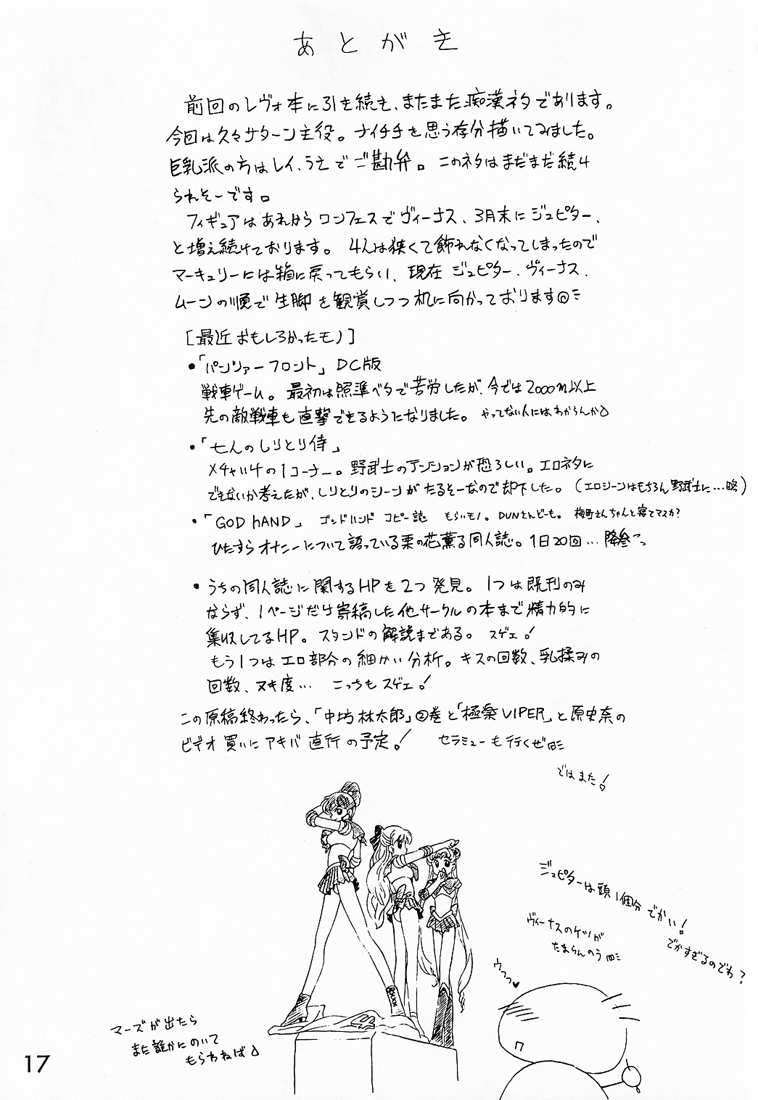 あとがき
前回のレヴォ本に引き続き、またまた痴漢ネタであります。
今回は久々サターン主役。ナイチチを思う存分描いてみました。
巨乳派の方はレイ、うえでご勘弁。このネタはまだまだ続け
られそーです。
フィギュアはあれからワンフェスでヴィーナス、3月末にジュピター、
と増え続けております。4人は狭くて飾れなくなってしまったので
マーキュリーには箱に戻ってもらい、現在ジュピター、ヴィーナス、
ムーンの順で生脚を観賞しつつ机に向かっております
[最近おもしろかったモノ]
・「パンツァーフロント」DC版
戦車ゲーム。最初は照準ベタで苦労したが、今では2000m以上
先の敵戦車も直撃できるようになりました。やってない人にはわからんか♪
・「七人のしりとり侍」
メチャイケの1コーナー。野武士のテンションが恐ろしい。エロネタに
できないか考えたが、しりとりのシーンがたるそーなので却下した。(エロシーンはもちろん野武士に…略)
・「GOD HAND」 ゴッドハンド コピー誌 もらいモノ。DUNさんどーも。ちゃんと寝てマスか?
ひたすらオナニーについて語っている栗の花薫る同人誌。1日20回…降参
・うちの同人誌に関するHPを2つ発見。1つは既刊のみ
ならず、1ページだけ寄稿した他サークルの本まで精力的に
集収してるHP。スタンドの解説まである。スゲェ!
もう1つはエロ部分の細かい分析。キスの回数、乳揉みの
回数、ヌキ度… こっちもスゲェ!
この原稿終わったら、「中坊林太郎」②巻と「極楽VIPER」と原史奈の
ビデオ買いにアキバ直行の予定。! セラミューも行くぜ
ではまた!
ジュピターは頭1個分でかい!
でかすぎるのでわ?
ヴィーナスのケツが
たまらんのう
ウフフ♥
マーズが出たら
また誰かにのいて
もらわねば♪
17